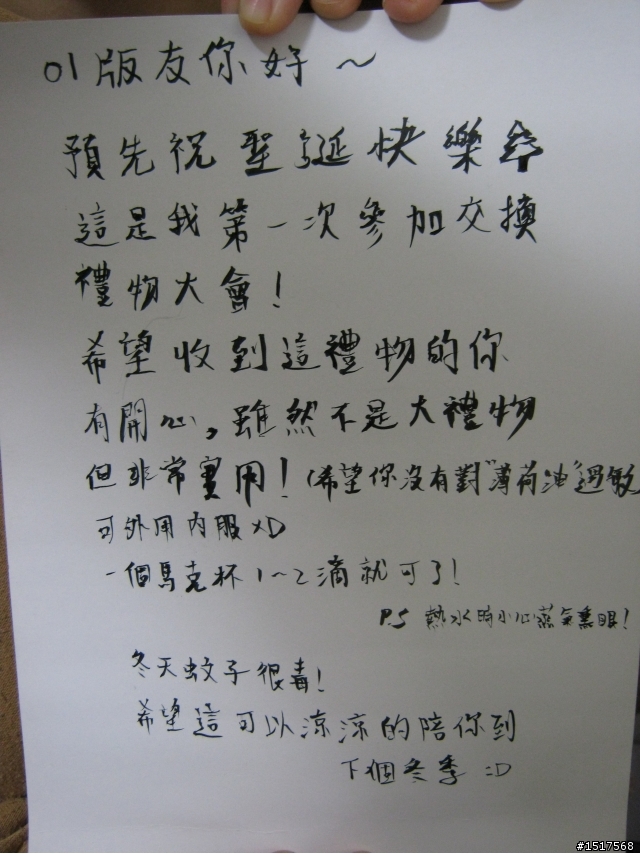 01版友你好~
預先祝聖誕快樂
這是我第一次參加交換
禮物大會!
希望收到這禮物的你
有開心,雖然不是大禮物
但非常實用!(希望你沒有對"薄荷油"過敏
可外用內服XD
一個馬克杯1~2滴就可了!
P.S 熱水時小心蒸氣熏眼!
冬天蚊子很毒!
希望這可以涼涼的陪你到
下個冬季 :D
#1517568